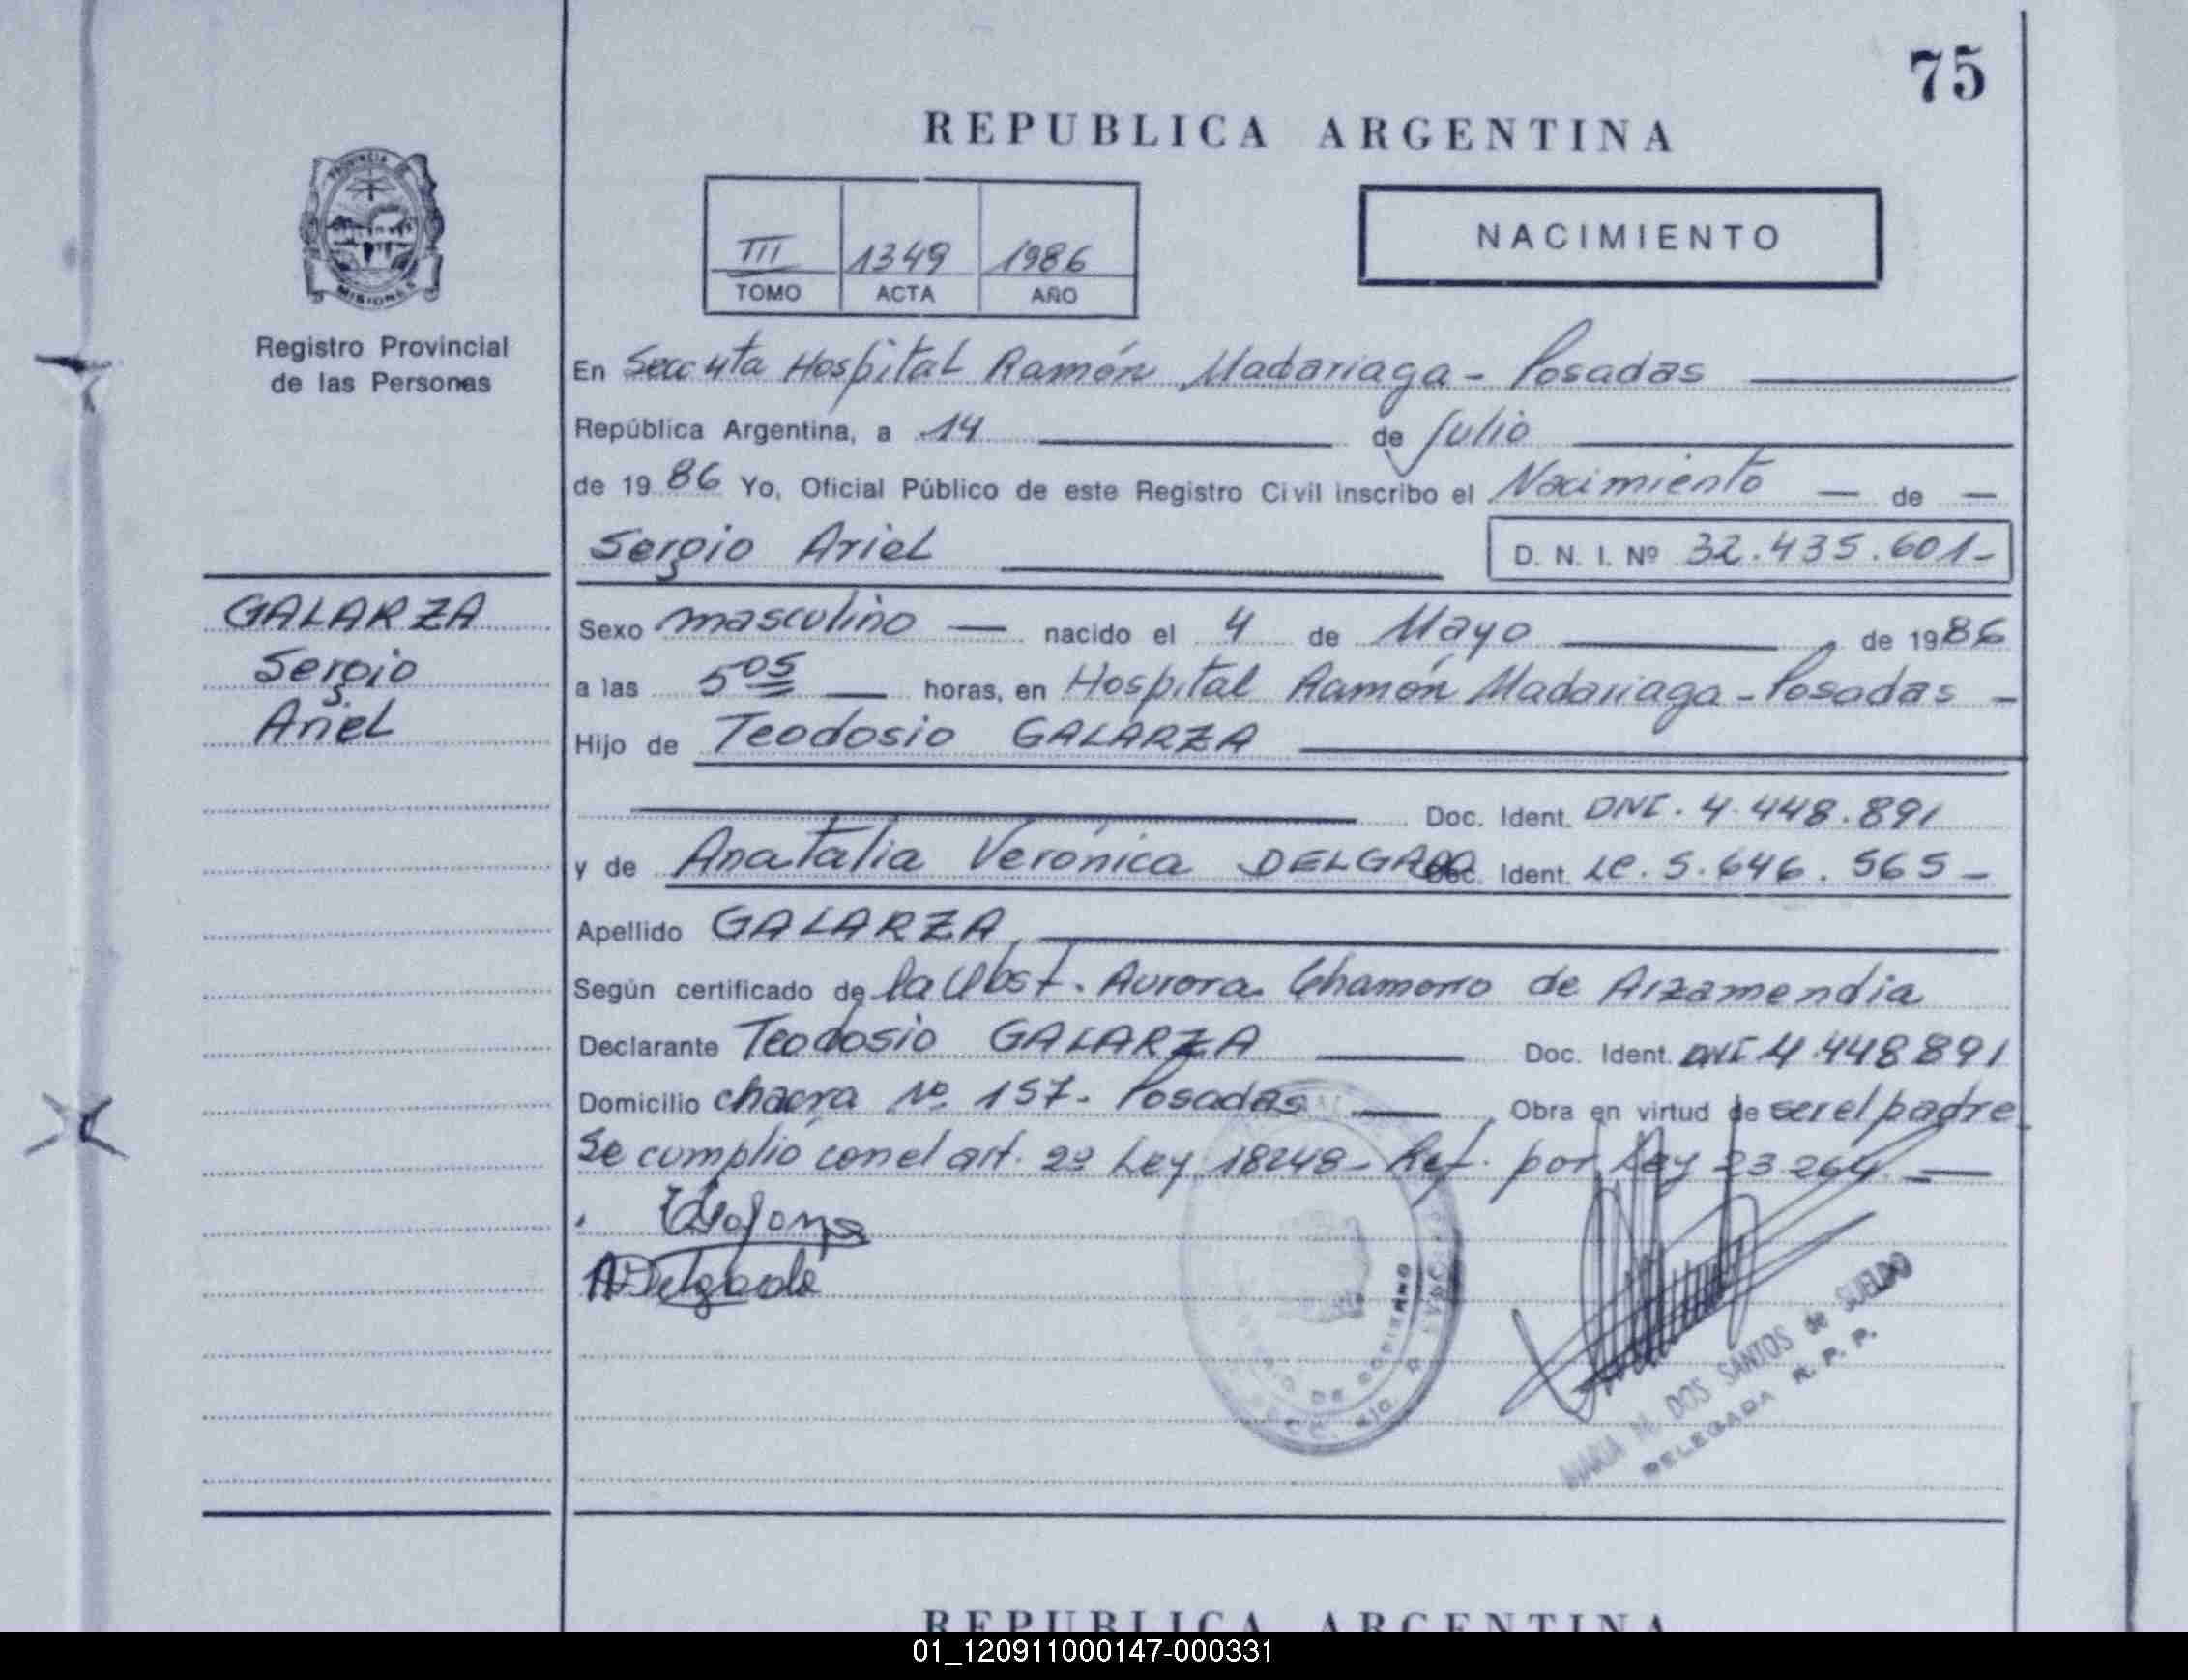 75
REPUBLICA ARGENTINA
PROVINCIA DE
MISIONES
Registro Provincial
de las Personas
III 1349 1986
TOMO ACTA AÑO
NACIMIENTO
En Secc 4ta Hospital Ramón Madariaga - Posadas
República Argentina, a 14 de Julio
de 19 86 Yo, Oficial Público de este Registro Civil inscribo el Nacimiento — de —
Sergio Ariel
D. N. I. Nº 32.435.601-
GALARZA
Sergio
Ariel
Sexo masculino — nacido el 4 de Mayo , de 1986
a las 5 05 — horas, en Hospital Ramón Madariaga - Posadas -
Hijo de Teodosio GALARZA
Doc. Ident. DNI. 4.448.891
y de Anatalia Verónica DELGADO Doc. Ident. LC. 5.646.565 -
Apellido GALARZA
Según certificado de la Obst. Aurora Chamorro de Arzamendia
Declarante Teodosio GALARZA Doc. Ident. DNI 4.448891
Domicilio chacra Nº 157. Posadas — , Obra en virtud de ser el padre
Se cumplió con el art. 2º Ley 18248 - Ref. por Ley 23.264. —
ADelgado
MARIA M. DOS SANTOS de SUELDO
DELEGADA R. P. P.
REPUBLICA ARGENTINA
01_120911000147-000331